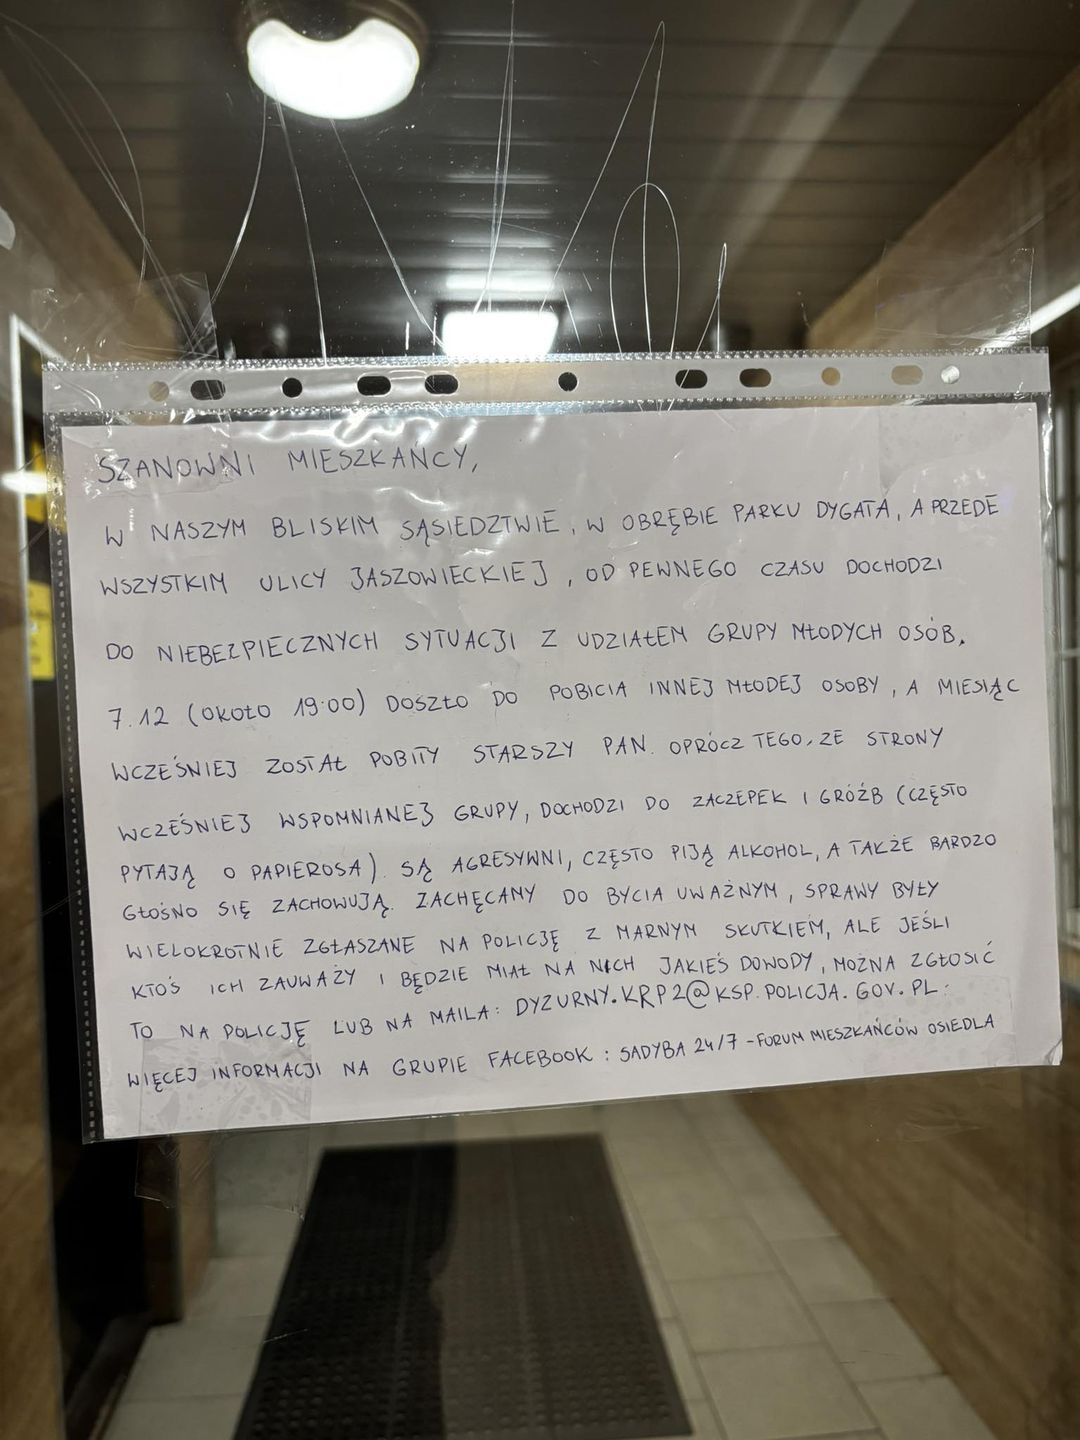 SZANOWNI MIESZKAŃCY,
W NASZYM BLISKIM SĄSIEDZTWIE, W OBRĘBIE PARKU DYGATA, A PRZEDE
WSZYSTKIM ULICY JASZOWIECKIEJ, OD PEWNEGO CZASU DOCHODZI
DO NIEBEZPIECZNYCH SYTUACJI Z UDZIAŁEM GRUPY MŁODYCH OSÓB.
7.12 (OKOŁO 19:00) DOSZŁO DO POBICIA INNEJ MŁODEJ OSOBY, A MIESIĄC
WCZEŚNIEJ ZOSTAŁ POBITY STARSZY PAN. OPRÓCZ TEGO, ZE STRONY
WCZEŚNIEJ WSPOMNIANEJ GRUPY, DOCHODZI DO ZACZEPEK I GRÓŹB (CZĘSTO
PYTAJĄ O PAPIEROSA). SĄ AGRESYWNI, CZĘSTO PIJĄ ALKOHOL, A TAKŻE BARDZO
GŁOŚNO SIĘ ZACHOWUJĄ. ZACHĘCAMY DO BYCIA UWAŻNYM, SPRAWY BYŁY
WIELOKROTNIE ZGŁASZANE NA POLICJĘ Z MARNYM SKUTKIEM, ALE JEŚLI
KTOŚ ICH ZAUWAŻY I BĘDZIE MIAŁ NA NICH JAKIEŚ DOWODY, MOŻNA ZGŁOSIĆ
TO NA POLICJĘ LUB NA MAILA: DYZURNY.KRP2@KSP.POLICJA.GOV.PL.
WIĘCEJ INFORMACJI NA GRUPIE FACEBOOK: SADYBA 24/7 - FORUM MIESZKAŃCÓW OSIEDLA